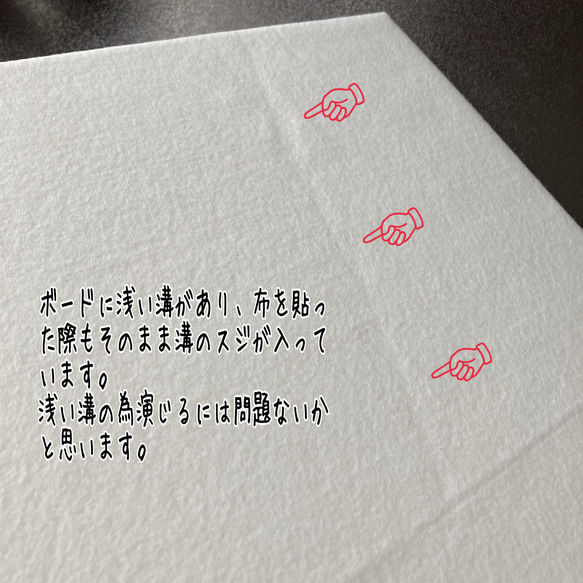 ボードに浅い溝があり、布を貼っ
た際もそのまま溝のスジが入って
います。
浅い溝の為演じるには問題ないか
と思います。